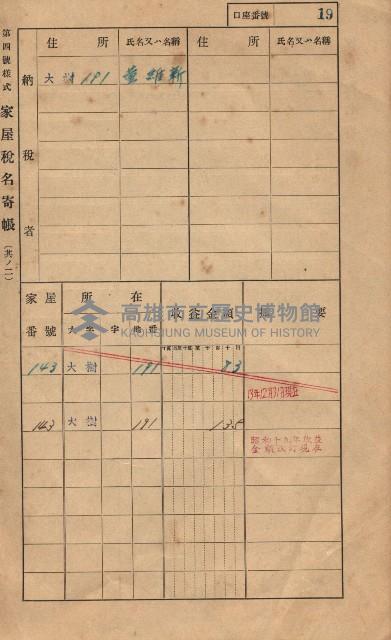 口座番號 19
第四號樣式 家屋稅名寄帳 (其ノ二)
納稅者
住所 氏名又ハ名稱 住所 氏名又ハ名稱
大樹 191 維新
家屋番號 所在 收益金額 摘要
大字 字 地番
143 大樹 191 83
13年12月31日現在
143 大樹 191 138
昭和十九年收益
金額改訂現在
高雄市立歷史博物館
KAOHSIUNG MUSEUM OF HISTORY